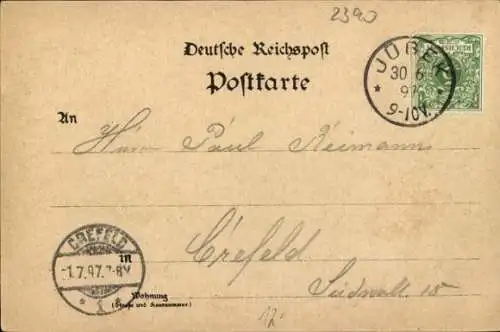 2390
Deutsche Reichspost
Postkarte
JÜBEK
30 6
97
9-10V.
An
Herrn Paul Reimann
CREFELD
1.7.97. 7-8V
1
in
Crefeld
Südwall. 15
Wohnung
(Straße und Hausnummer)
12.-